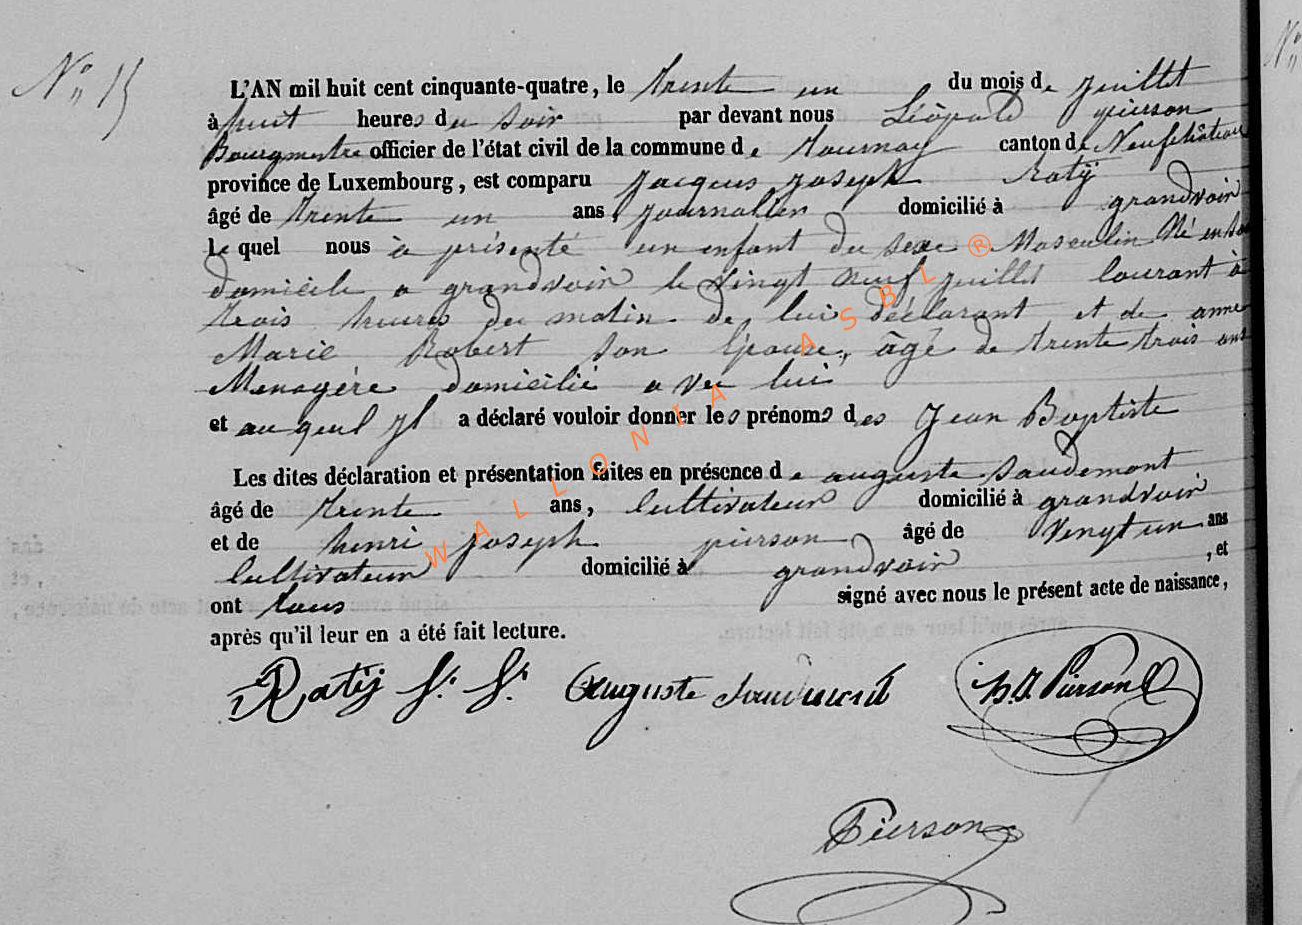 N° 15
L'AN mil huit cent cinquante-quatre, le trente un du mois de juillet
à huit heures du soir par devant nous Léopold pierson
Bourgmestre officier de l'état civil de la commune de tournay canton de Neufchâteau
province de Luxembourg, est comparu Jacques Joseph Ratij
âgé de trente un ans, journalier domicilié à grandvoir
le quel nous à présenté un enfant du sexe Masculin Né en son
domicile a grandvoir le vingt neuf juillet courant à
trois heures du matin de lui déclarant et de anne
Marie Robert son épouse, âgé de trente trois ans
Menagère domicilié avec lui
et au quel il a déclaré vouloir donner les prénoms des Jean Baptiste
Les dites déclaration et présentation faites en présence de auguste saudemont
âgé de trente ans, cultivateur domicilié à grandvoir
et de henri joseph pierson âgé de vingt un ans
cultivateur domicilié à grandvoir, et
ont tous signé avec nous le présent acte de naissance,
après qu'il leur en a été fait lecture.
Ratij J. J. Auguste Saudemont h. J. Pierson
Pierson
WALLONIA ASBL ®